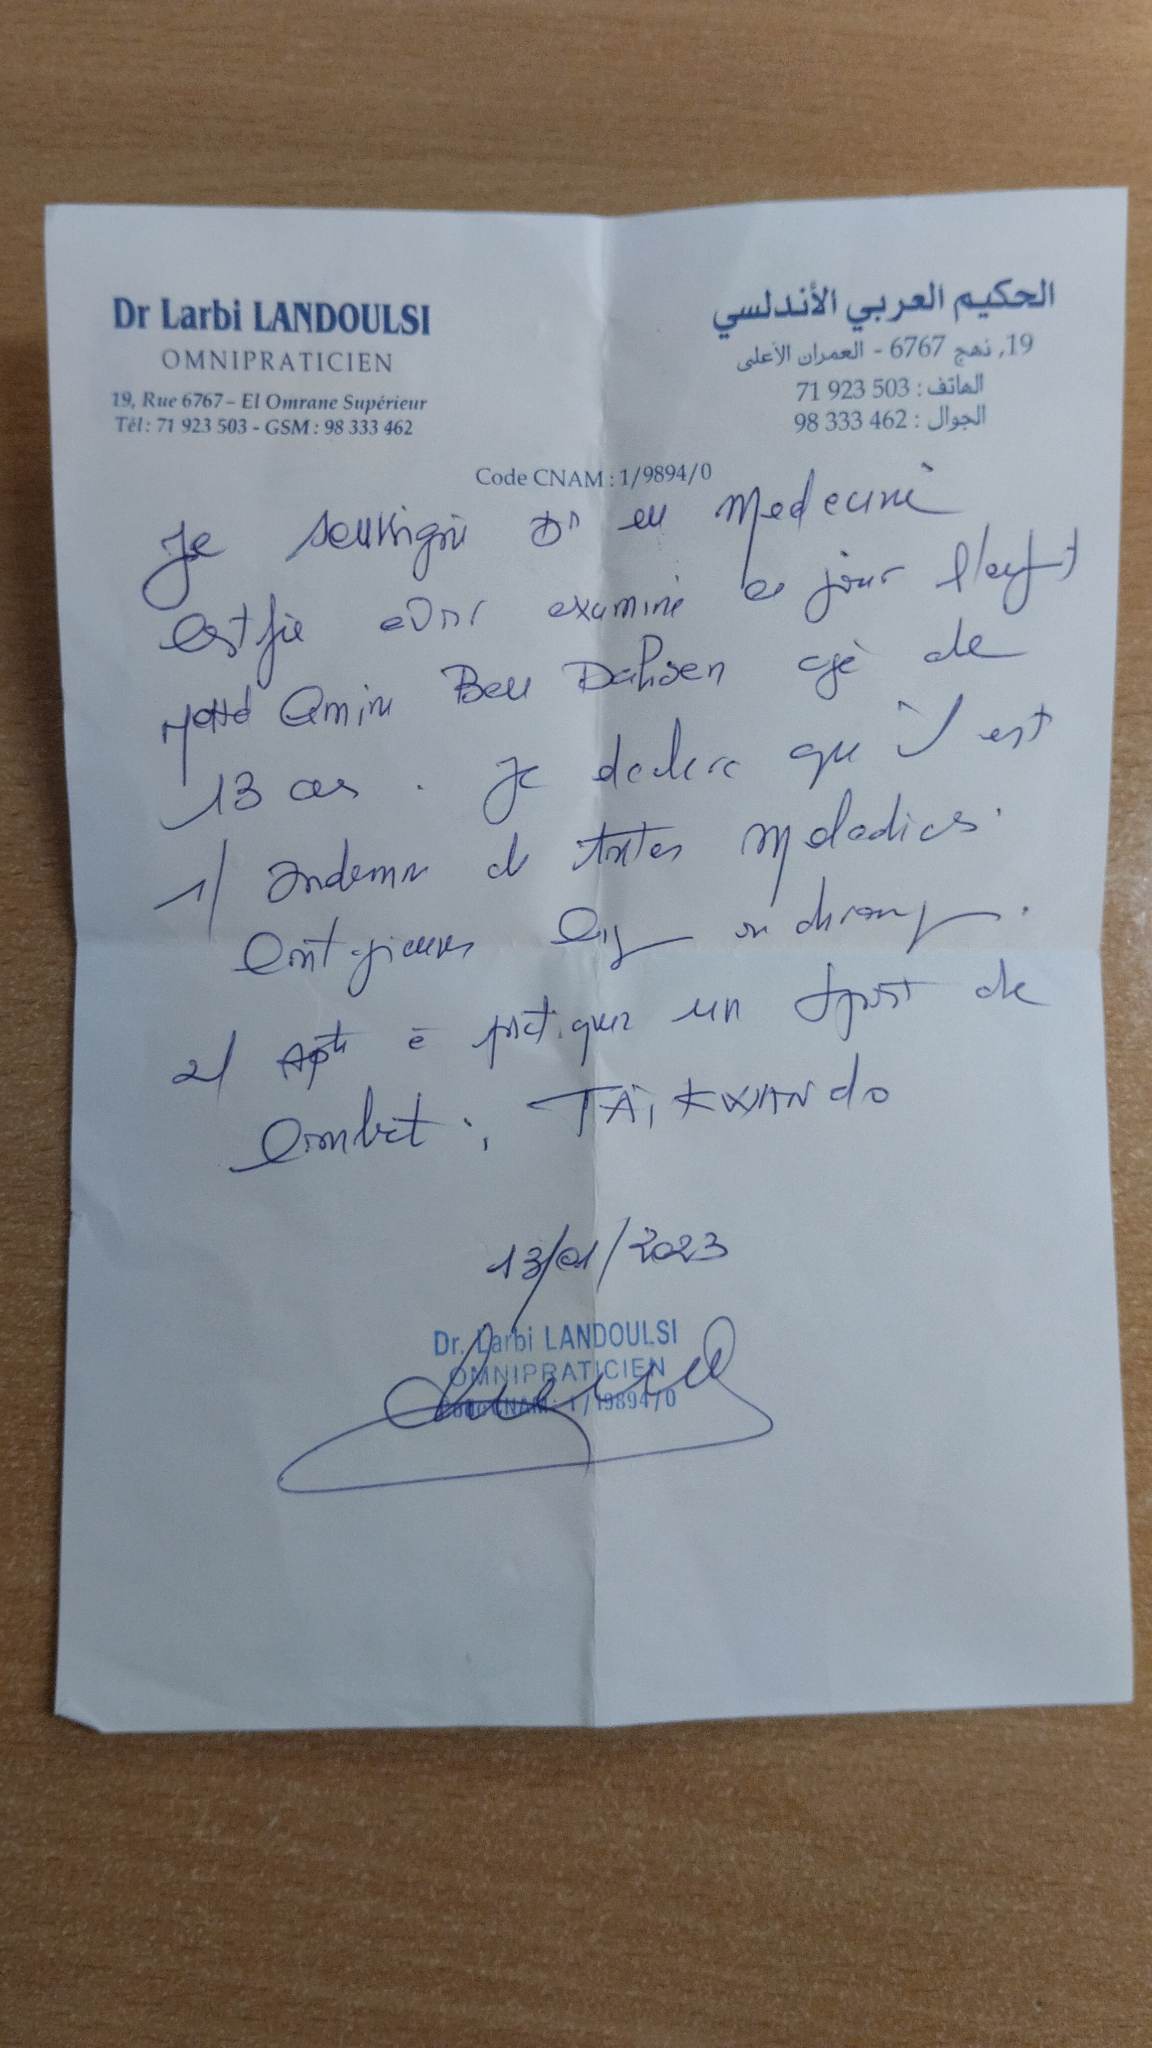 Dr Larbi LANDOULSI
OMNIPRATICIEN
19, Rue 6767 – El Omrane Supérieur
Tél : 71 923 503 - GSM : 98 333 462
الحكيم العربي الأندلسي
19, نهج 6767 - العمران الأعلى
الهاتف : 503 923 71
الجوال : 462 333 98
Code CNAM : 1/9894/0
Je soussigné Dr en Medecine
certifie avoir examiné ce jour l'enfant
Mohd Amine Ben Dahsen agé de
13 ans. Je declare que il est
1/ Indemne de toutes maladies
contagieuses ou chronique.
2/ Apte à pratiquer un sport de
Combat : TAiKWANDO
13/01/2023
Dr. Larbi LANDOULSI
OMNIPRATICIEN
Code CNAM : 1/19894/0